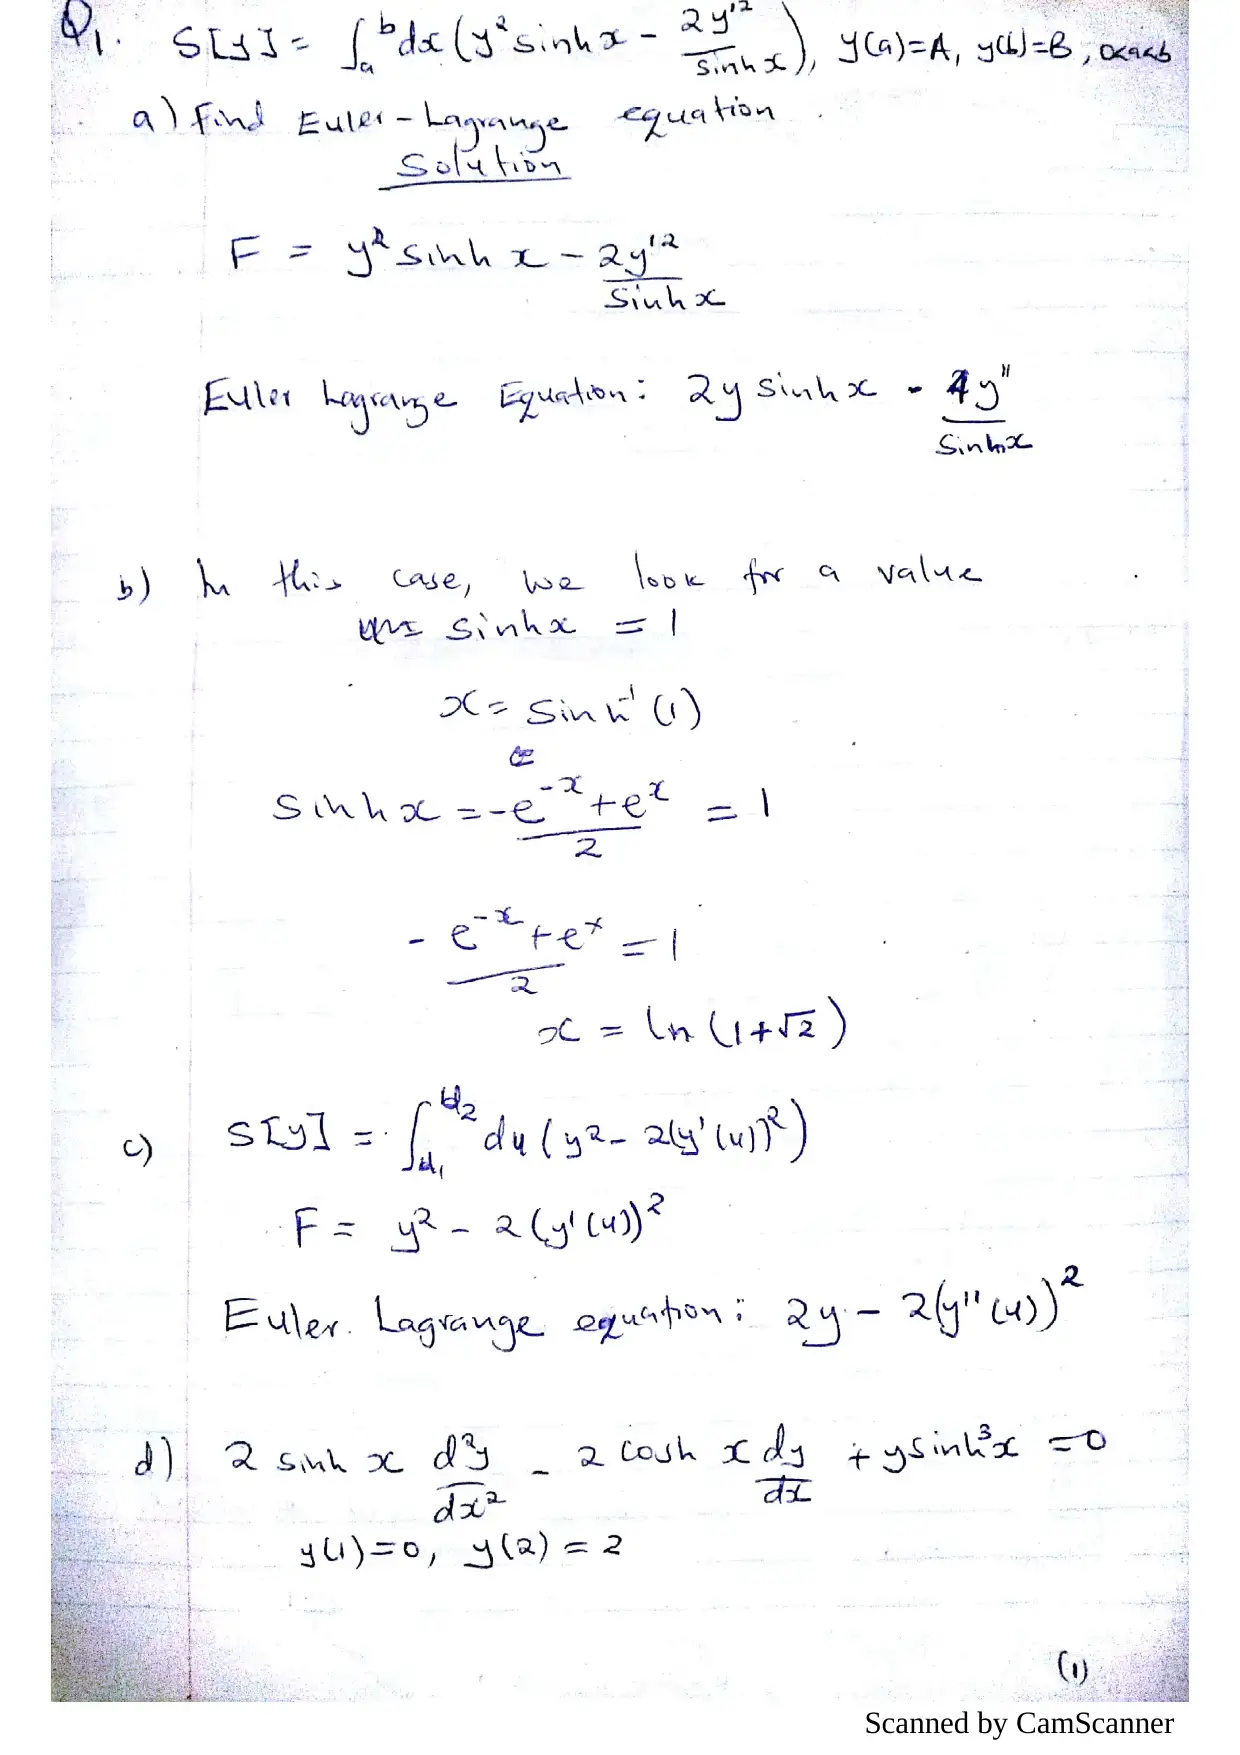 Q1. S[y] = ∫ₐᵇ dx (y² sinh x - 2y'²/sinh x), y(a)=A, y(b)=B, 0<a<b
a) Find Euler-Lagrange equation.
Solution
F = y² sinh x - 2y'²/sinh x
Euler Lagrange Equation: 2y sinh x - 4y''/sinh x
b) In this case, we look for a value
sinh x = 1
x = sinh⁻¹(1)
sinh x = -e⁻ˣ+eˣ/2 = 1
-e⁻ˣ+eˣ/2 = 1
x = ln(1+√2)
c) S[y] = ∫ du (y² - 2(y'(u))²)
F = y² - 2(y'(u))²
Euler. Lagrange equation: 2y - 2(y''(u))²
d) 2 sinh x d²y/dx² - 2 cosh x dy/dx + y sinh³x = 0
y(1)=0, y(2) = 2
(1)
Scanned by CamScanner